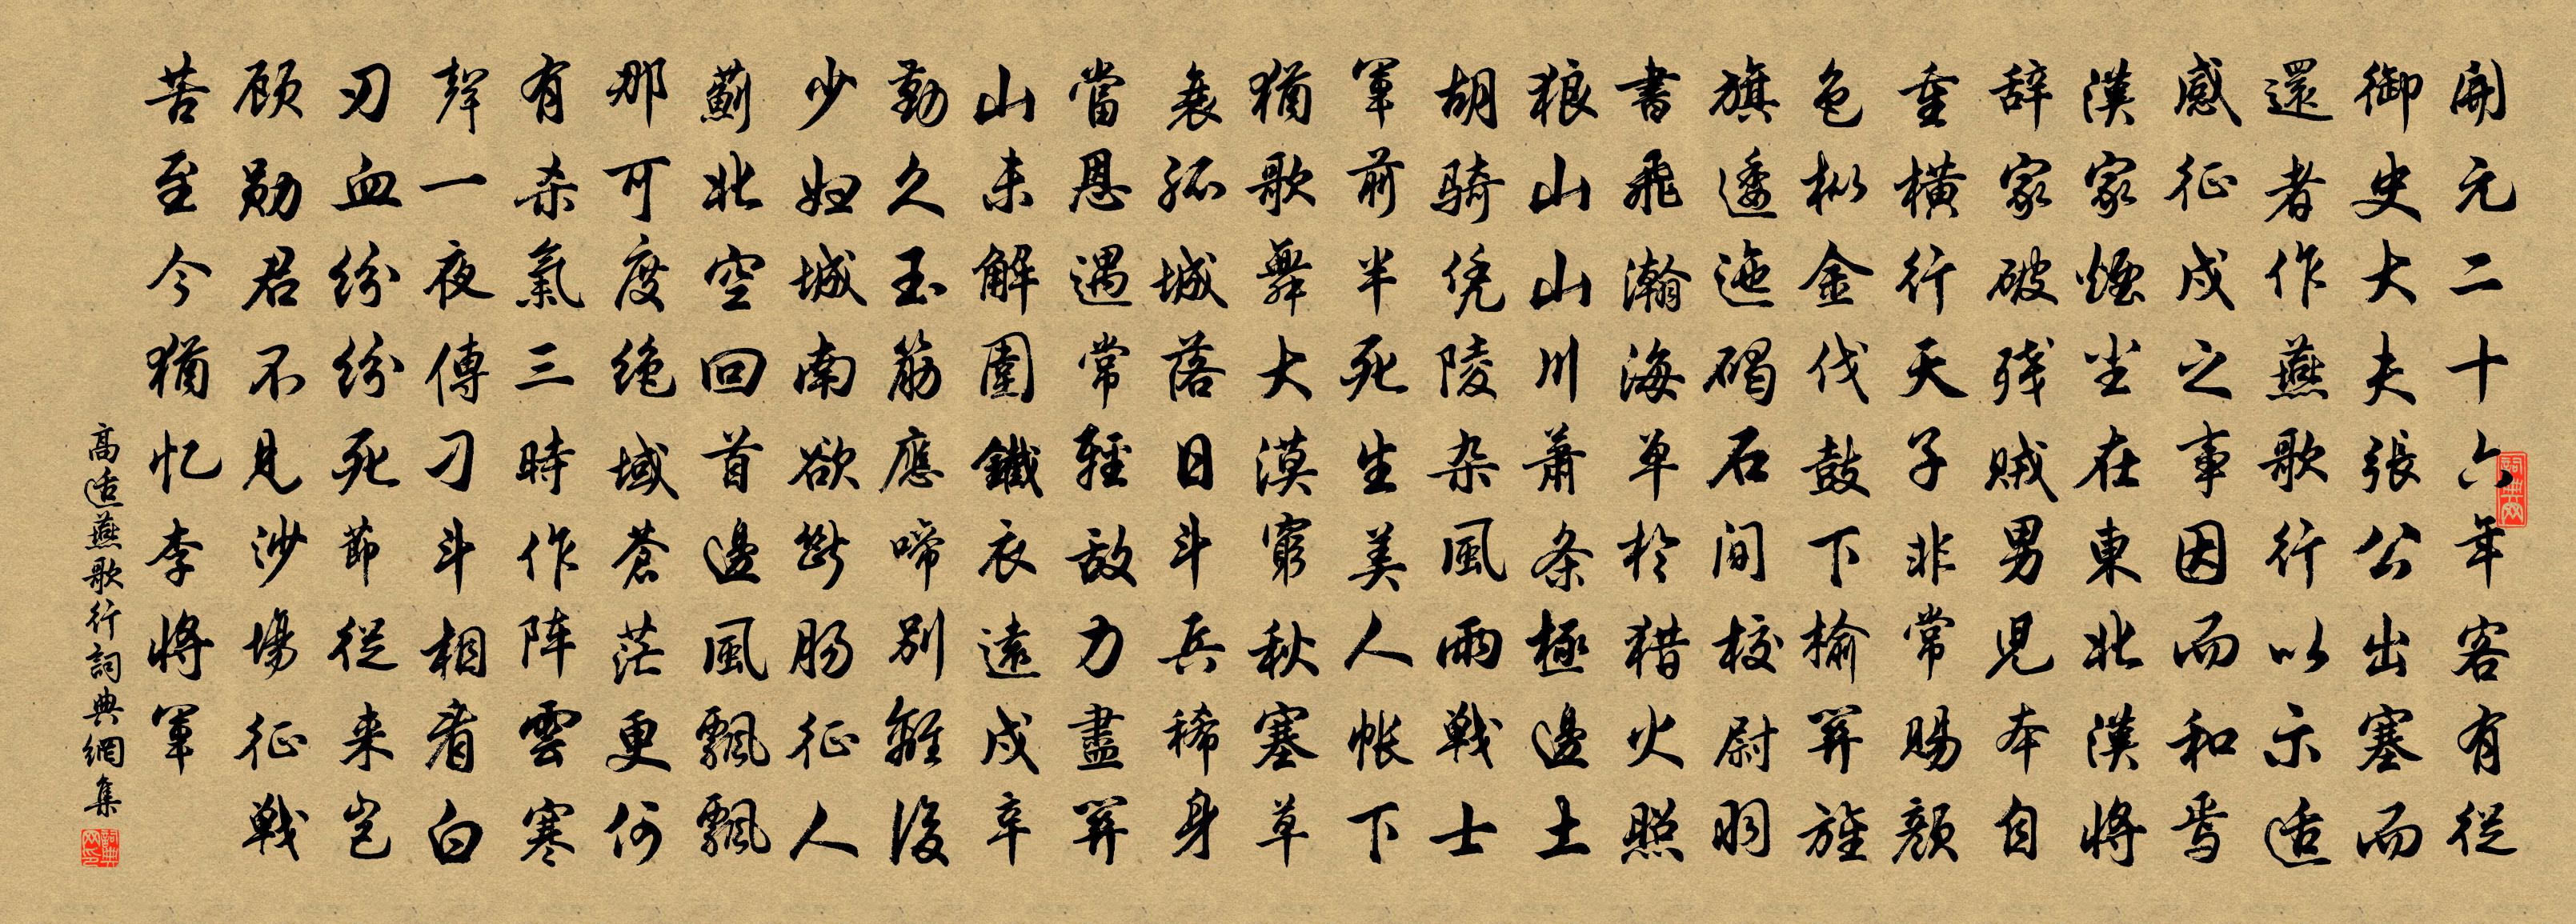 開元二十六年客有從
御史大夫張公出塞而
還者作燕歌行以示适
感征戍之事因而和焉
漢家煙尘在東北漢將
辞家破残贼男児本自
重横行天子非常賜顏
色枞金伐鼓下榆關旌
旗逶迤碣石间校尉羽
書飛瀚海单於猎火照
狼山山川蕭条極邊土
胡骑凭陵杂風雨戰士
軍前半死生美人帐下
猶歌舞大漠窮秋塞草
衰孤城落日斗兵稀身
當恩遇常輕敌力盡關
山未解圍鐵衣遠戍辛
勤久玉筋應啼别離後
少妇城南欲斷肠征人
薊北空回首邊風飄飄
那可度绝域蒼茫更何
有杀氣三時作阵雲寒
聲一夜傳刁斗相看白
刃血纷纷死節從来岂
顾勋君不見沙場征戰
苦至今猶忆李将軍
高适燕歌行詞典網集
詞典网
詞典网印